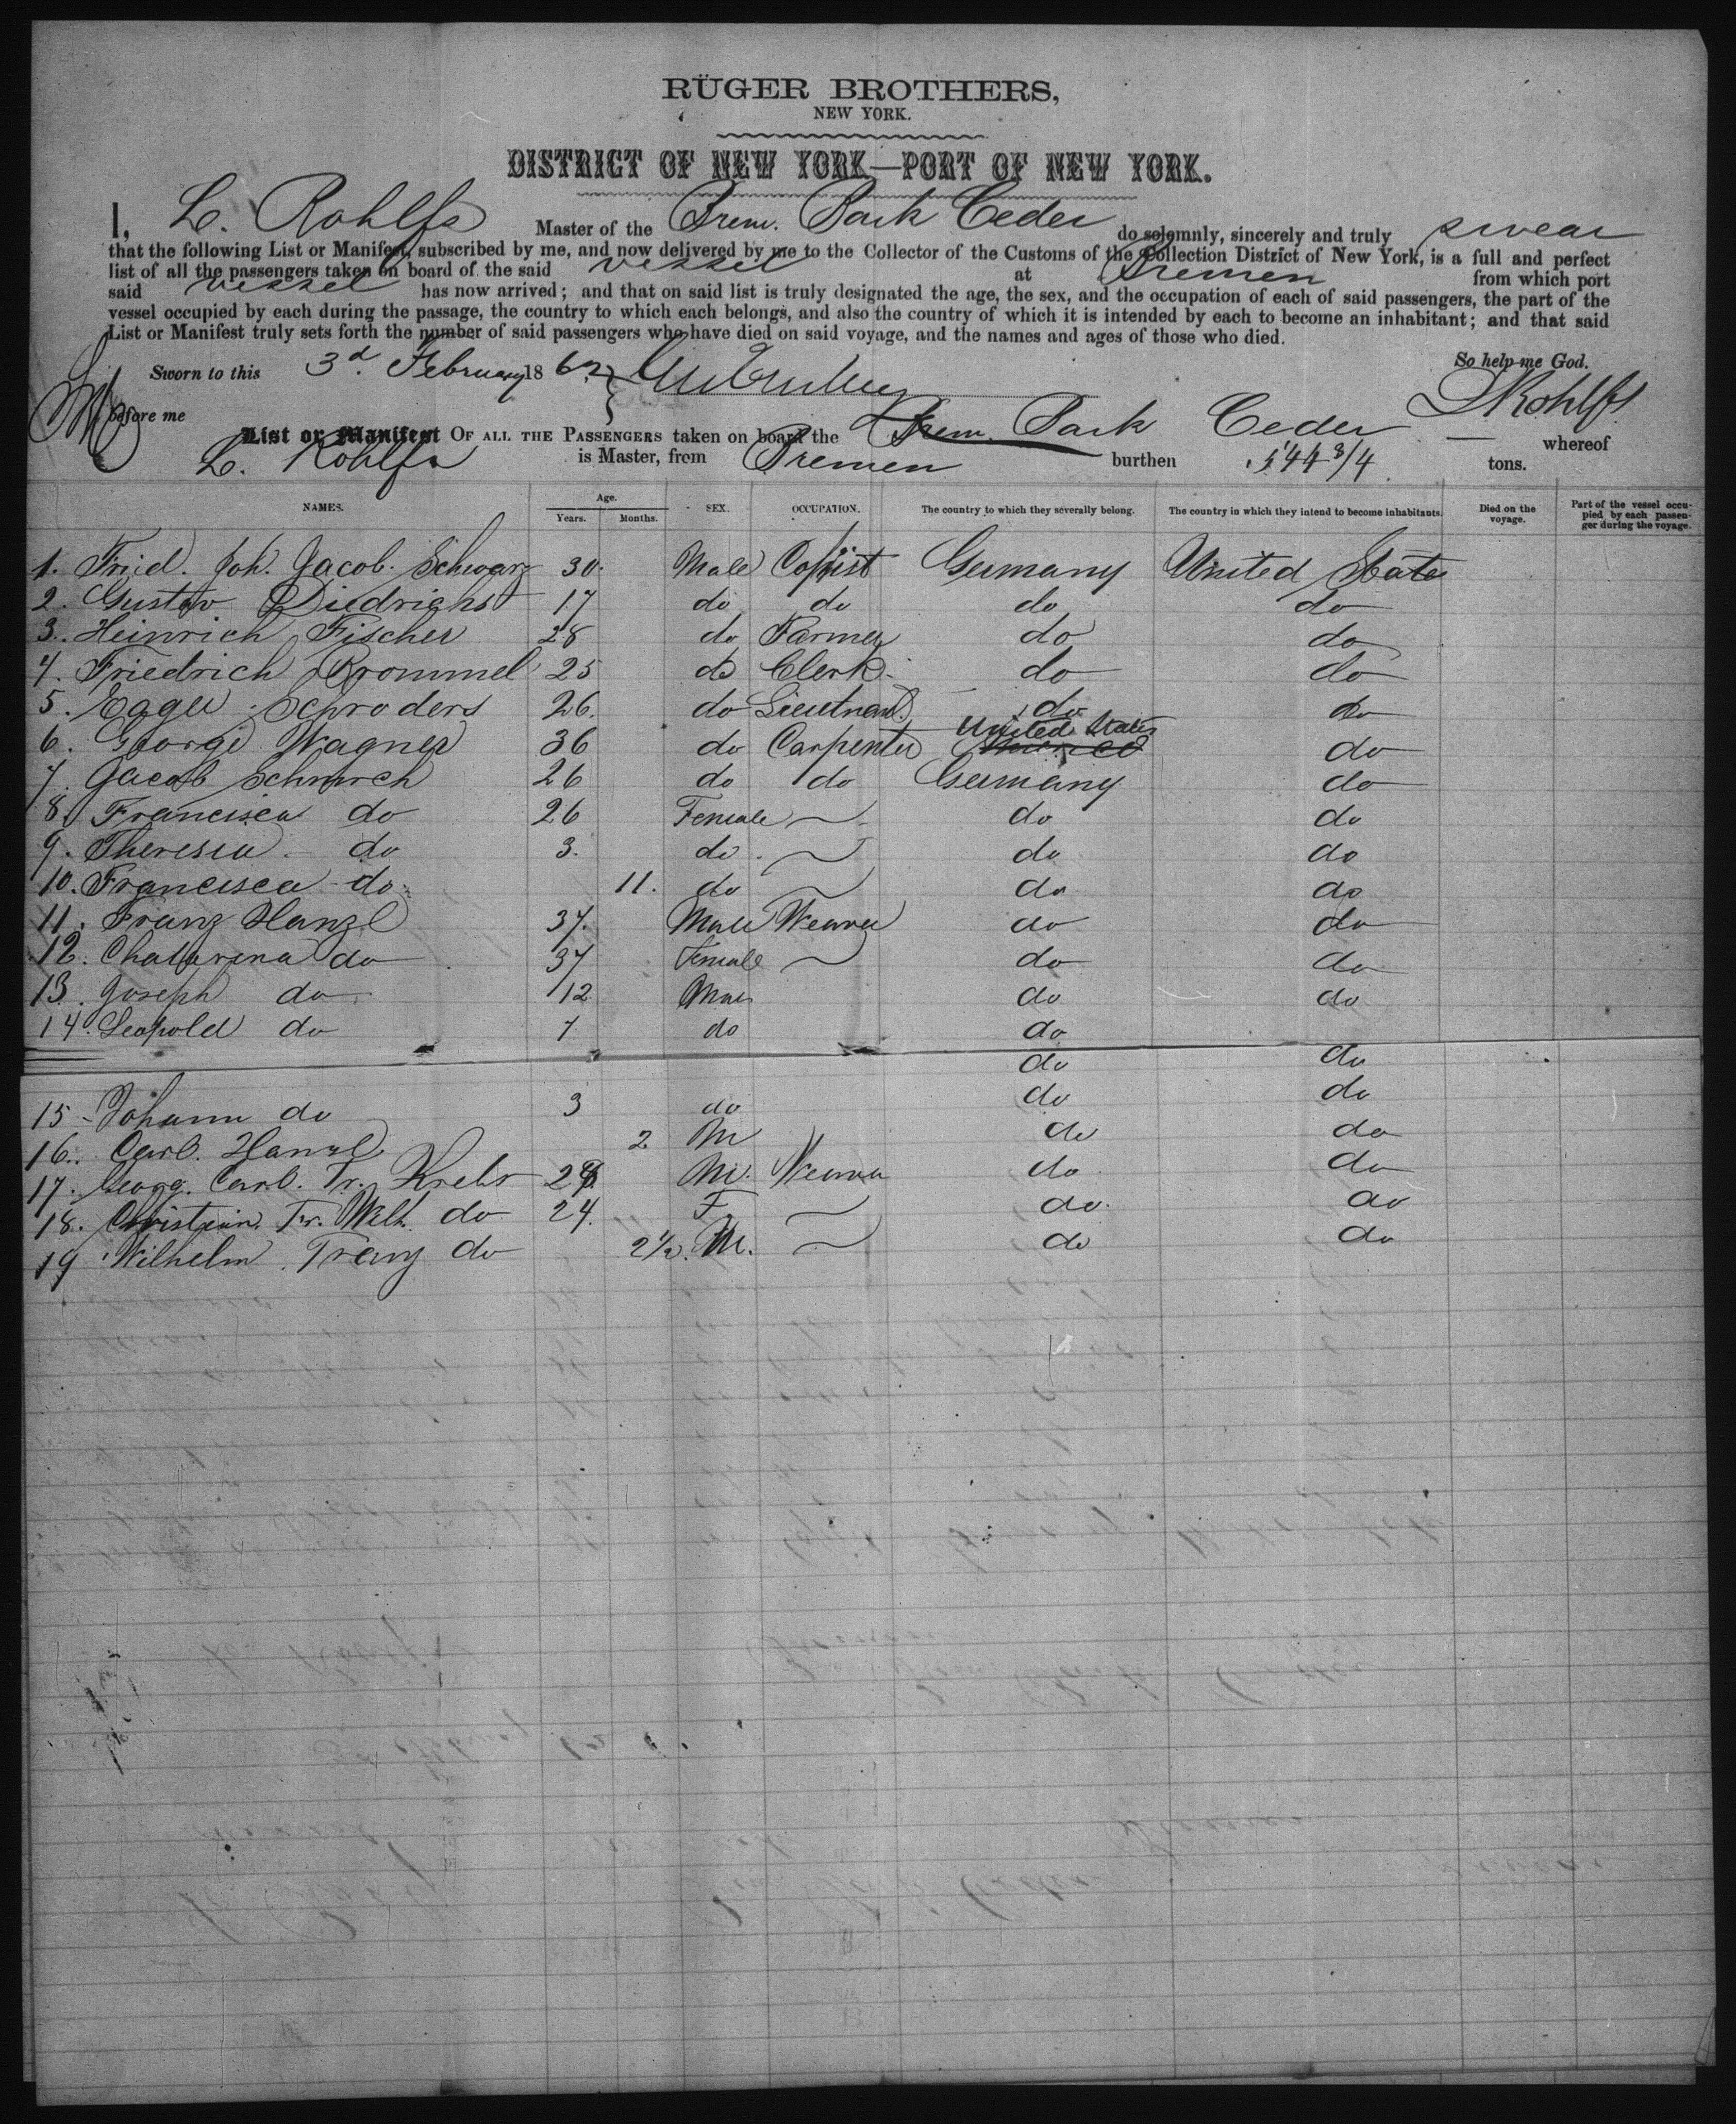 RÜGER BROTHERS,
NEW YORK.
DISTRICT OF NEW YORK—PORT OF NEW YORK.
I, L. Rohlfs Master of the Brem. Bark Ceder do solemnly, sincerely and truly swear
that the following List or Manifest, subscribed by me, and now delivered by me to the Collector of the Customs of the Collection District of New York, is a full and perfect
list of all the passengers taken on board of the said vessel at Bremen from which port
said vessel has now arrived; and that on said list is truly designated the age, the sex, and the occupation of each of said passengers, the part of the
vessel occupied by each during the passage, the country to which each belongs, and also the country of which it is intended by each to become an inhabitant; and that said
List or Manifest truly sets forth the number of said passengers who have died on said voyage, and the names and ages of those who died.
So help me God.
Sworn to this 3d. February 1862
LRohlfs
before me
List or Manifest OF ALL THE PASSENGERS taken on board the Brem. Bark Ceder whereof
L. Rohlfs is Master, from Bremen burthen 144 3/4 tons.
NAMES. Age. Years. Months. SEX. OCCUPATION. The country to which they severally belong. The country in which they intend to become inhabitants. Died on the voyage. Part of the vessel occupied by each passenger during the voyage.
1. Fried. Joh. Jacob. Schwarz 30. Male Coppist Germany United States
2. Gustav Diedrichs 17 do do do do
3. Heinrich Fischer 28 do Farmer do do
4. Friedrich Brommel 25 do Clerk. do do
5. Schroders 26. do Lieutnant. do do
6. George Wagner 36 do Carpenter United States do
7. Jacob 26 do do Germany do
8. Francisca do 26 Female do do
9. Theresia do 3. do do do
10. Francisca do 11. do do do
11. Franz Hanzl 37. Male Weaver do do
12. Chatarina do 37 Female do do
13. Joseph do 12 Male do do
14. Leopold do 7 do do
do do
15 Johann do 3 do do do
16. Carl. Hanzl 2 M do do
17. Georg. Carl. Fr. Krebs M. Weaver do do
18. Christian. Fr. Wilh. do 24. F do. do
19 Wilhelm Franz do 2 1/2. M. do do